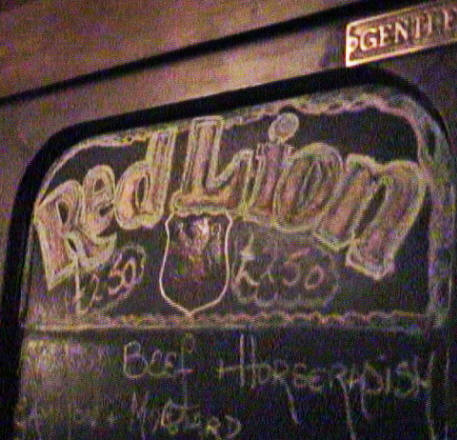 GENTLE
Red Lion
£2.50 £2.50
BEEF HORSERADISH
MUSTARD